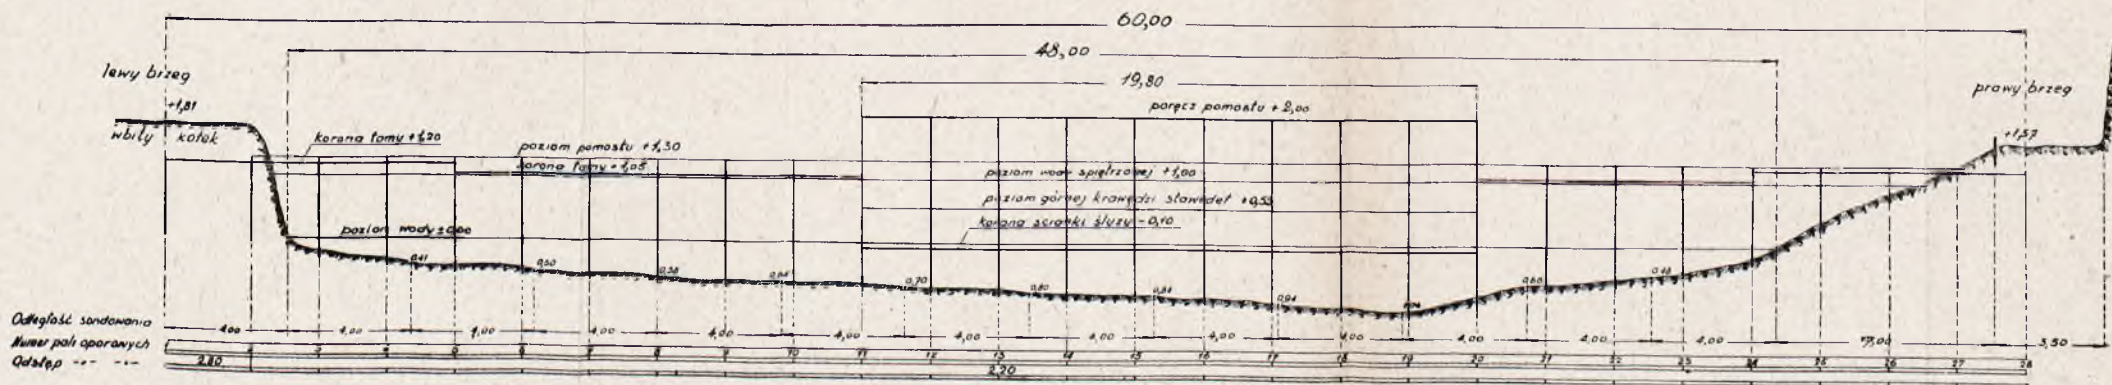 60,00
48,00
19,80
lewy brzeg
prawy brzeg
+1,81
wbity kołek
korona tamy +1,20
poziom pomostu +1,30
korona tamy +1,05
poręcz pomostu +2,00
+1,57
poziom wody spiętrzonej +1,00
poziom górnej krawędzi stawideł +0,55
korona ścianki śluzy -0,10
poziom wody ±0,00
0,41 0,50 0,58 0,70 0,80 0,84 0,94 0,60 0,48
Odległość sondowania 4,00 4,00 4,00 4,00 4,00 4,00 4,00 4,00 4,00 4,00 4,00 4,00 4,00 5,50
Numer pali oporowych 10 11 12 13 14 15 16 17 18 19 20 21 22 23 24 25 26 27 28
Odstęp -"- -"- 2,80 2,20